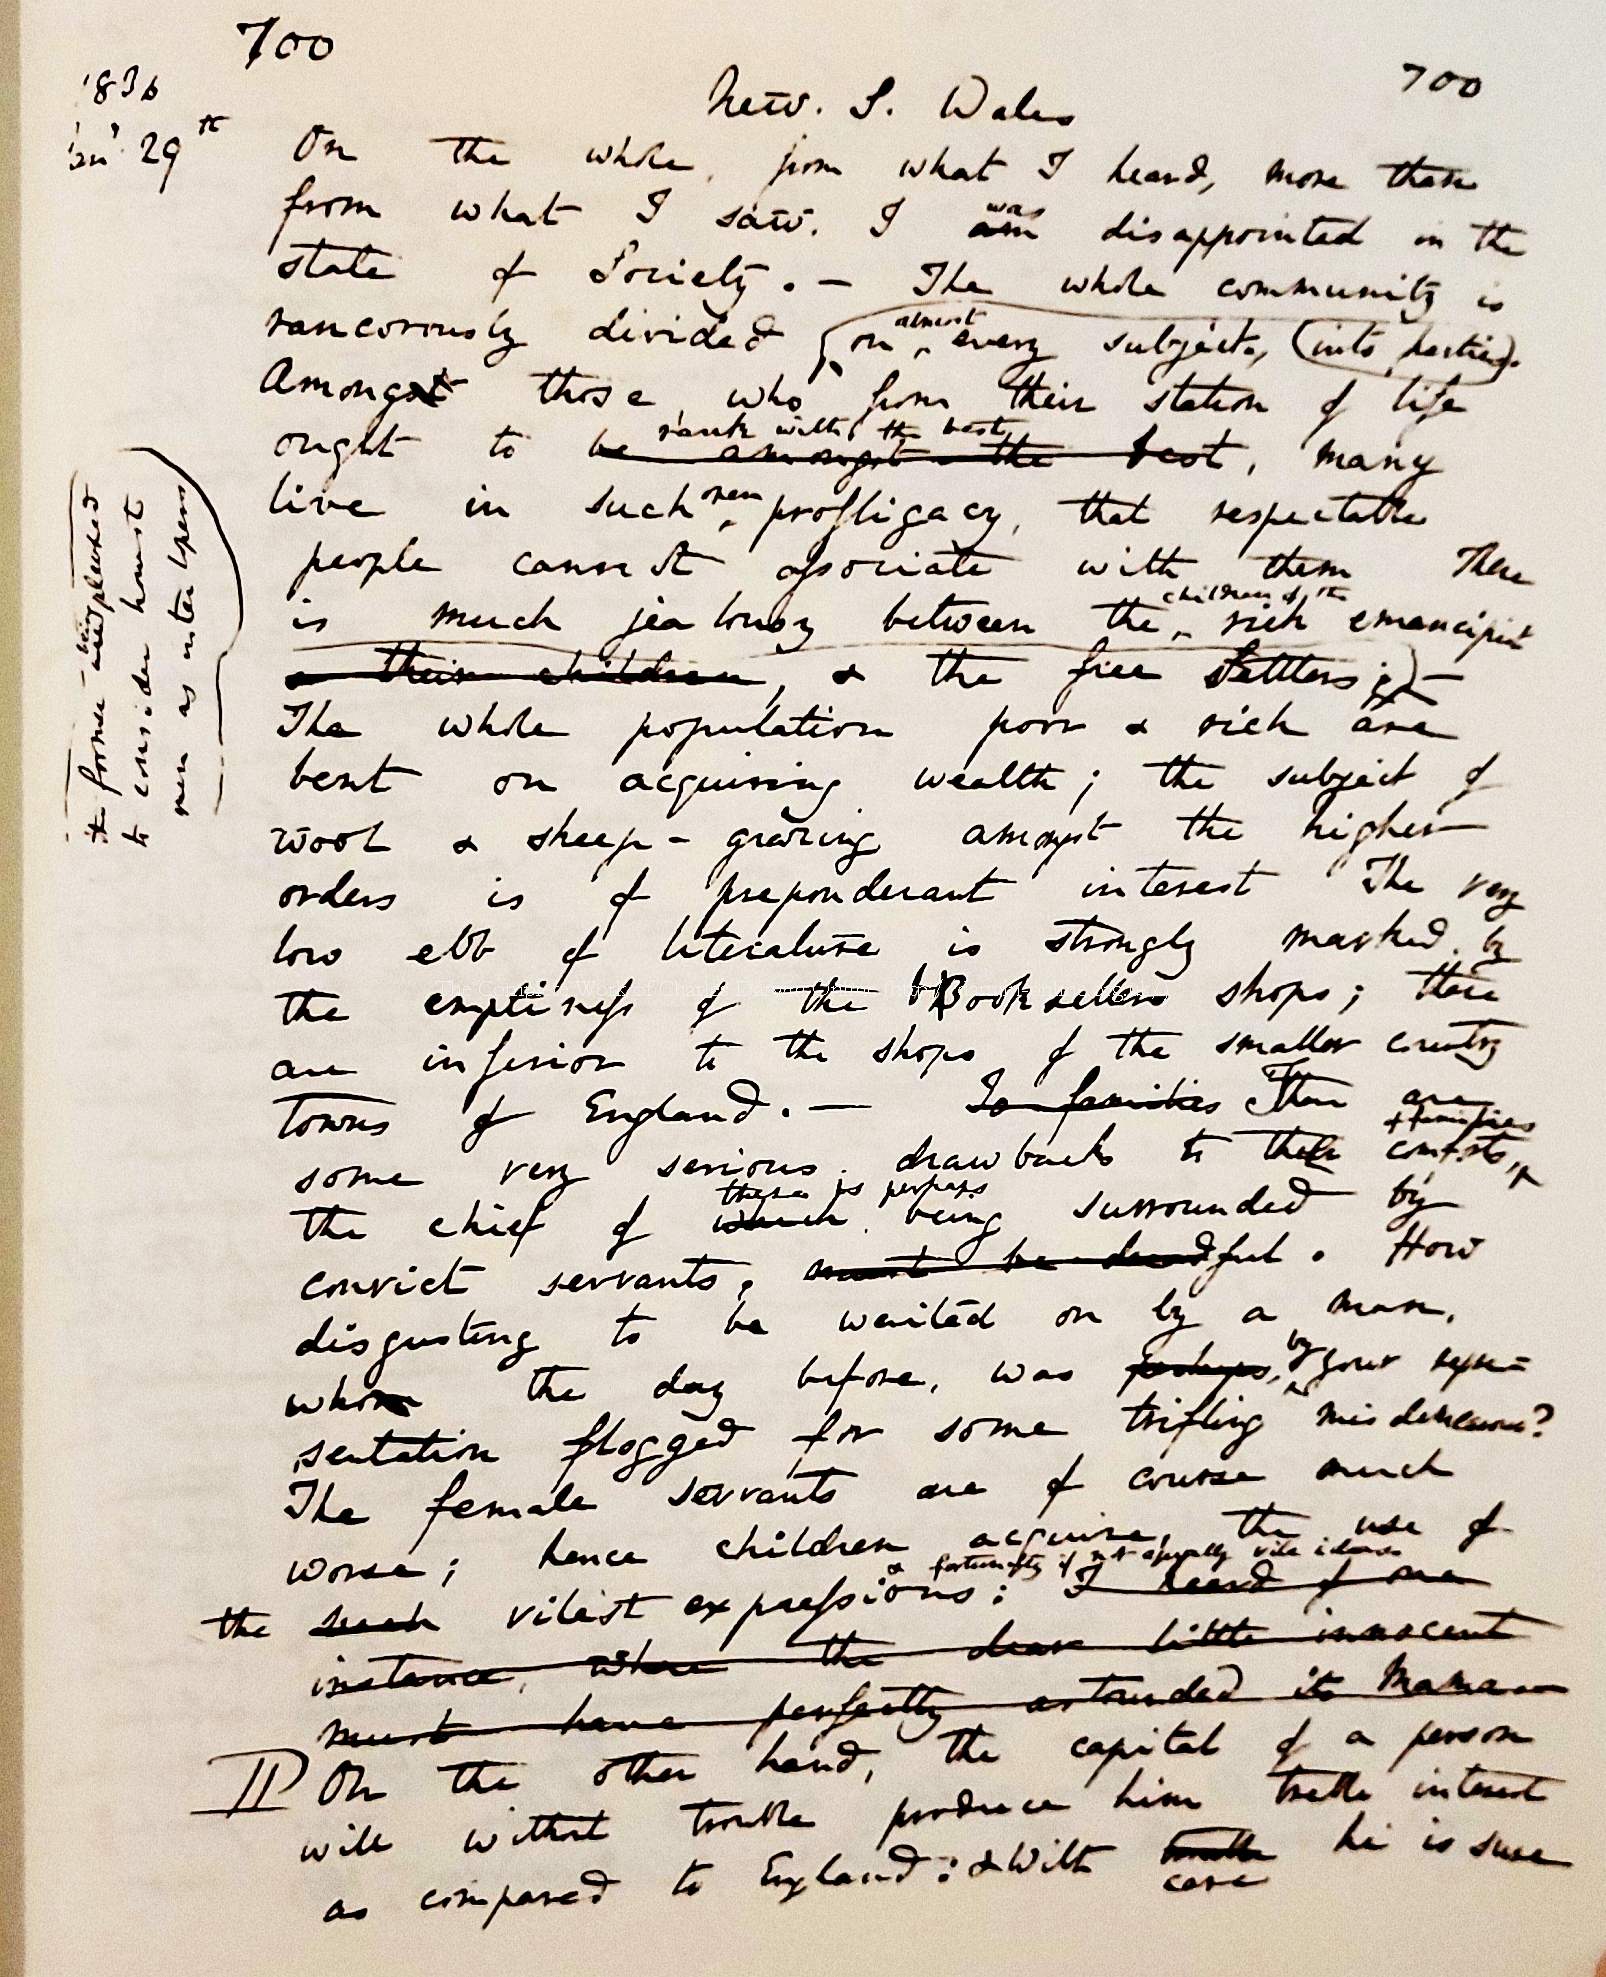 700
700
1836
Jan' 29th
New. S. Wales
On the whole, from what I heard, more than
from what I saw. I am was disappointed in the
state of Society. — The whole community is
rancorously divided (on almost every subject, (into parties).
Amongst those, who from their station of life
ought to be amongst the best rank with the best, many
live in such open profligacy, that respectable
people cannot associate with them There
is much jealousy between the children of the rich emancipist
& their children, & the free Settlers;) —
the former being pleased
to consider honest
men as interlopers
The whole population poor & rich are
bent on acquiring wealth; the subject of
wool & sheep-grazing amongst the higher
orders is of preponderant interest The very
low ebb of literature is strongly marked by
the emptiness of the Booksellers shops; these
are inferior to the shops of the smaller country
towns of England. — To families There are
some very serious drawbacks to their comforts, families
the chief of which these is perhaps being surrounded by
convict servants, must be dreadful. How
disgusting to be waited on by a man,
who the day before, was perhaps, by your repre-
sentation flogged for some trifling misdemeanor?
The female servants are of course much
worse; hence children acquire, the use of
the such vilest expressions; & fortunately if not equally vile ideas I heard of one
instance, where the dear little innocent
must have perfectly astounded its Mama —
II On the other hand, the capital of a person
will without trouble produce him treble interest
as compared to England: & With trouble care he is sure